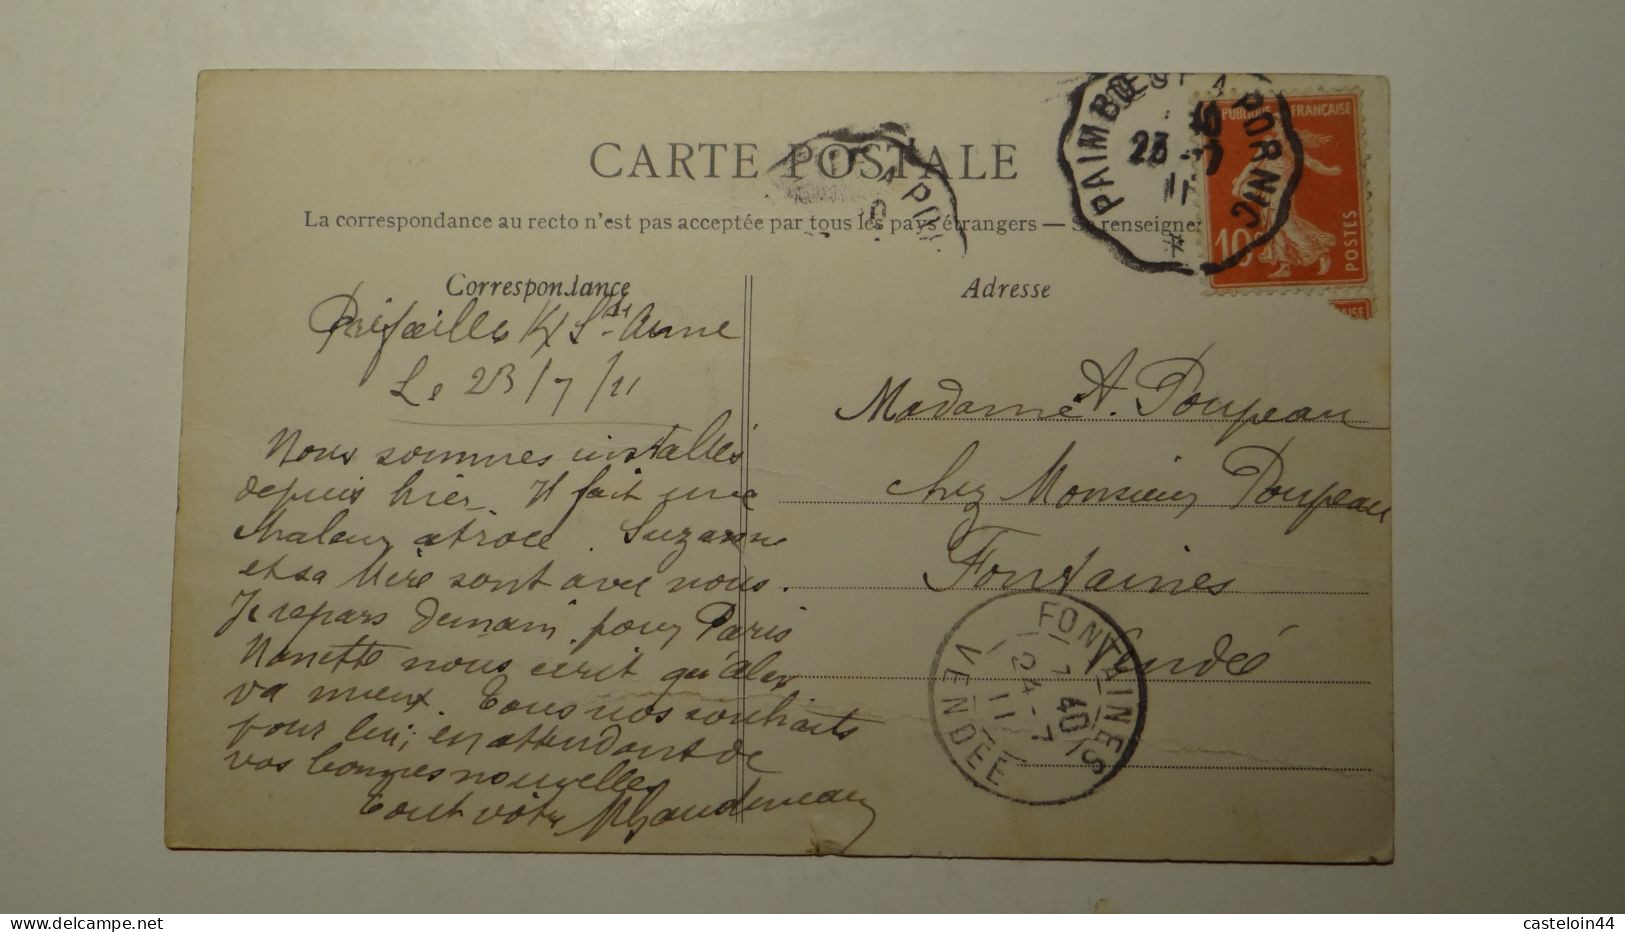 CARTE POSTALE
La correspondance au recto n'est pas acceptée par tous les pays étrangers — Se renseigner
Correspondance
Préfailles Ste Anne
Le 23/7/11
Nous sommes installés
depuis hier Il fait une
chaleur atroce. Suzanne
et sa Mère sont avec nous.
Je repars demain pour Paris
Nanette nous écrit qu'Alex
va mieux. Tous nos souhaits
pour lui; en attendant de
vos bonnes nouvelles
Tout votre
Adresse
Madame A. Poupeau
chez Monsieur Poupeau
Fontaines
Vendée
PAIMBŒUF A PORNIC
23 -7
11
A PO
RÉPUBLIQUE FRANÇAISE
10c
POSTES
FONTAINES
7 40
24 -7
11
VENDÉE
delcampe.net
casteloin44